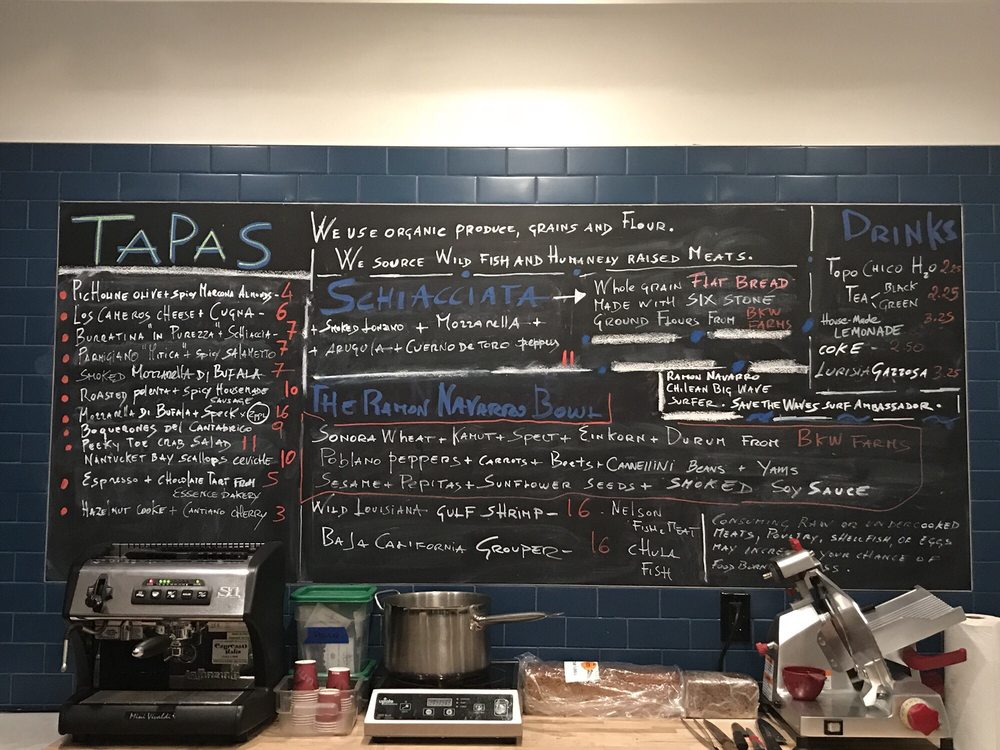 TAPAS
PICHOLINE OLIVE + SPICY MARCONA ALMONDS - 4
LOS CAMEROS CHEESE + CUGNA - 6
BURRATINA "IN PUREZZA" + SCHIACCIA - 7
PARMIGIANO + SPICY SALAMETTO 7
SMOKED MOZZARELLA DI BUFALA - 7
ROASTED POLENTA + SPICY HOUSEMADE 10
SAUSAGE
MOZZARELLA DI BUFALA + SPECK 16
BOQUERONES DEL CANTABRICO 9
PEEKY TOE CRAB SALAD 11
NANTUCKET BAY SCALLOPS CEVICHE 10
ESPRESSO + CHOCOLATE TART FROM 5
ESSENCE BAKERY
HAZELNUT COOKIE + CANTIANO CHERRY 3
WE USE ORGANIC PRODUCE, GRAINS AND FLOUR.
WE SOURCE WILD FISH AND HUMANELY RAISED MEATS.
SCHIACCIATA
WHOLE GRAIN FLAT BREAD
MADE WITH SIX STONE
GROUND FLOURS FROM BKW
FARMS
+ SMOKED LONZINO + MOZZARELLA +
+ ARUGULA + CUERNO DE TORO PEPPERS
11
THE RAMON NAVARRO BOWL
RAMON NAVARRO
CHILEAN BIG WAVE
SURFER. SAVE THE WAVES SURF AMBASSADOR.
SONORA WHEAT + KAMUT + SPELT + EINKORN + DURUM FROM BKW FARMS
POBLANO PEPPERS + CARROTS + BEETS + CANNELLINI BEANS + YAMS
SESAME + PEPITAS + SUNFLOWER SEEDS + SMOKED SOY SAUCE
WILD LOUISIANA GULF SHRIMP - 16
BAJA CALIFORNIA GROUPER - 16
NELSON
FISH & MEAT
CHULA
FISH
CONSUMING RAW OR UNDERCOOKED
MEATS, POULTRY, SHELLFISH, OR EGGS
MAY INCREASE YOUR CHANCE OF
FOOD BORNE
DRINKS
TOPO CHICO H2O 2.25
TEA BLACK
GREEN 2.25
HOUSE-MADE 3.25
LEMONADE
COKE - 2.50
LURISIA GAZZOSA 3.25
Mini Vivaldi